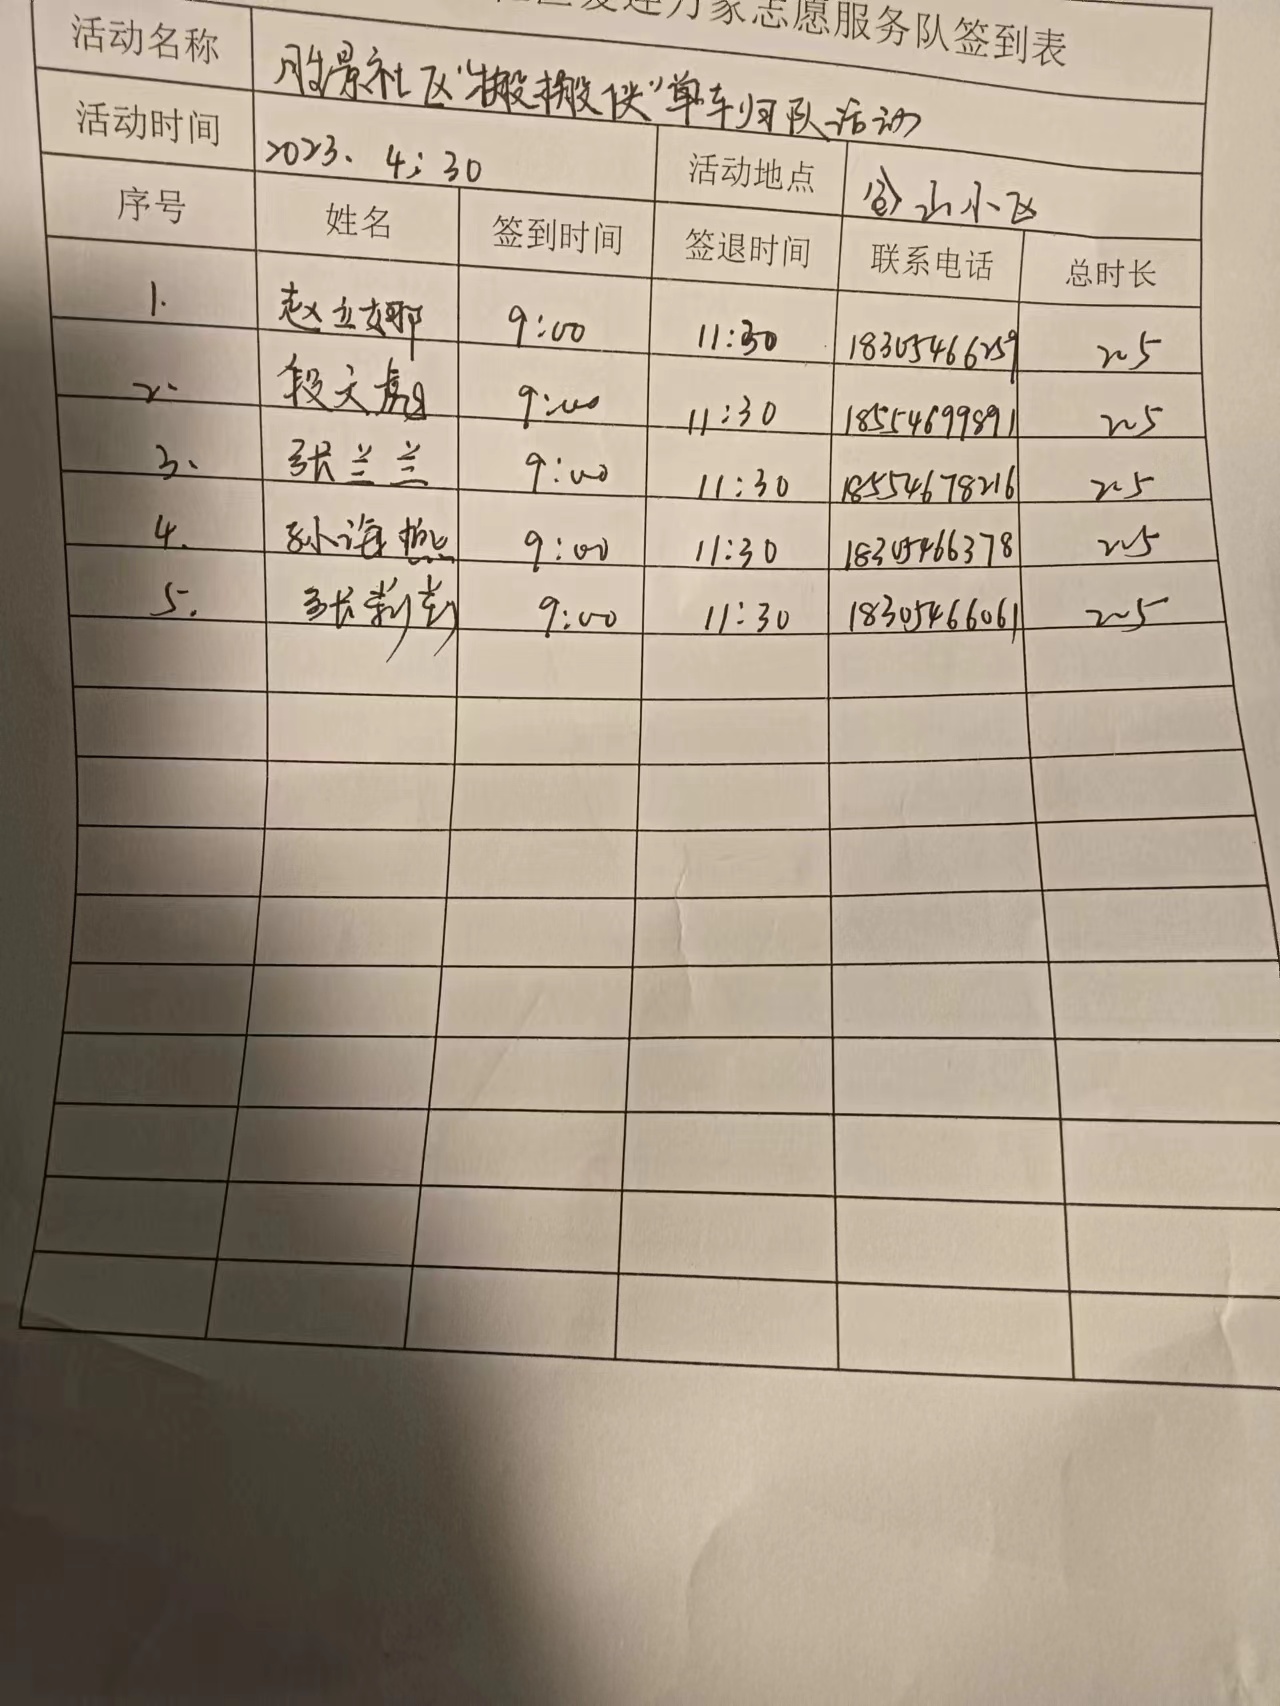 区爱连万家志愿服务队签到表
活动名称 胜景社区“搬搬侠”单车归队活动
活动时间 2023. 4; 30 活动地点 山小区
序号 姓名 签到时间 签退时间 联系电话 总时长
1. 赵立娜 9:00 11:30 18305466259 2.5
2. 段文彪 9:00 11:30 18554699891 2.5
3. 张兰兰 9:00 11:30 18554678216 2.5
4. 孙海燕 9:00 11:30 18305466378 2.5
5. 张莉莉 9:00 11:30 18305466061 2.5